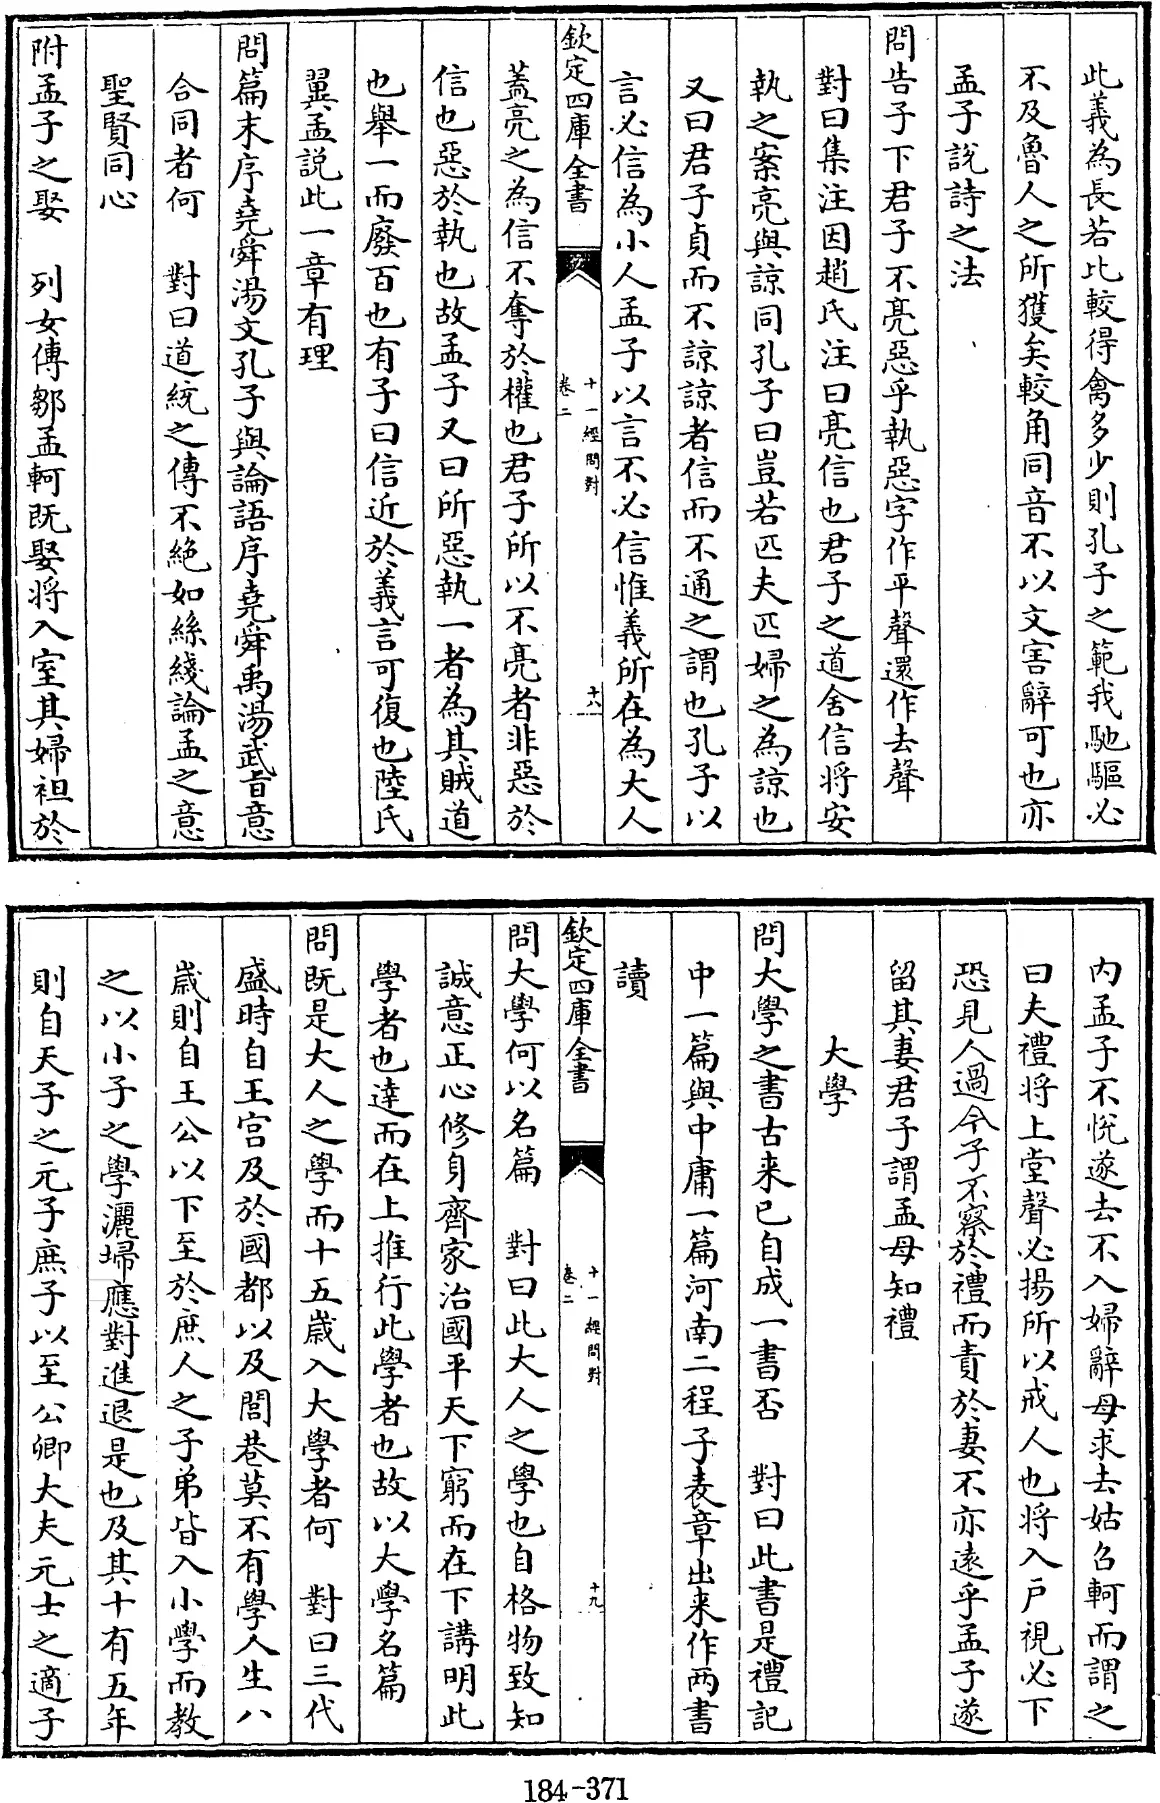 此義為長若比較得禽多少則孔子之範我馳驅必
不及魯人之所獲矣較角同音不以文害辭可也亦
孟子說詩之法
問告子下君子不亮惡乎執惡字作平聲還作去聲
對曰集注因趙氏注曰亮信也君子之道舍信将安
執之案亮與諒同孔子曰豈若匹夫匹婦之為諒也
又曰君子貞而不諒諒者信而不通之謂也孔子以
言必信為小人孟子以言不必信惟義所在為大人
欽定四庫全書
卷二
十一經問對
十八
蓋亮之為信不奪於權也君子所以不亮者非惡於
信也惡於執也故孟子又曰所惡執一者為其賊道
也舉一而廢百也有子曰信近於義言可復也陸氏
翼孟説此一章有理
問篇末序堯舜湯文孔子與論語序堯舜禹湯武旨意
合同者何　對曰道統之傳不絶如絲綫論孟之意
聖賢同心
附孟子之娶　列女傳鄒孟軻既娶将入室其婦袒於
内孟子不悅遂去不入婦辭母求去姑召軻而謂之
曰夫禮将上堂聲必揚所以戒人也将入戸視必下
恐見人過今子不察於禮而責於妻不亦遠乎孟子遂
留其妻君子謂孟母知禮
大學
問大學之書古来已自成一書否　對曰此書是禮記
中一篇與中庸一篇河南二程子表章出来作两書
讀
欽定四庫全書
卷二
十一經問對
十九
問大學何以名篇　對曰此大人之學也自格物致知
誠意正心修身齊家治國平天下窮而在下講明此
學者也達而在上推行此學者也故以大學名篇
問既是大人之學而十五歲入大學者何　對曰三代
盛時自王宫及於國都以及閭巷莫不有學人生八
歲則自王公以下至於庶人之子弟皆入小學而教
之以小子之學灑埽應對進退是也及其十有五年
則自天子之元子庶子以至公卿大夫元士之適子
184-371